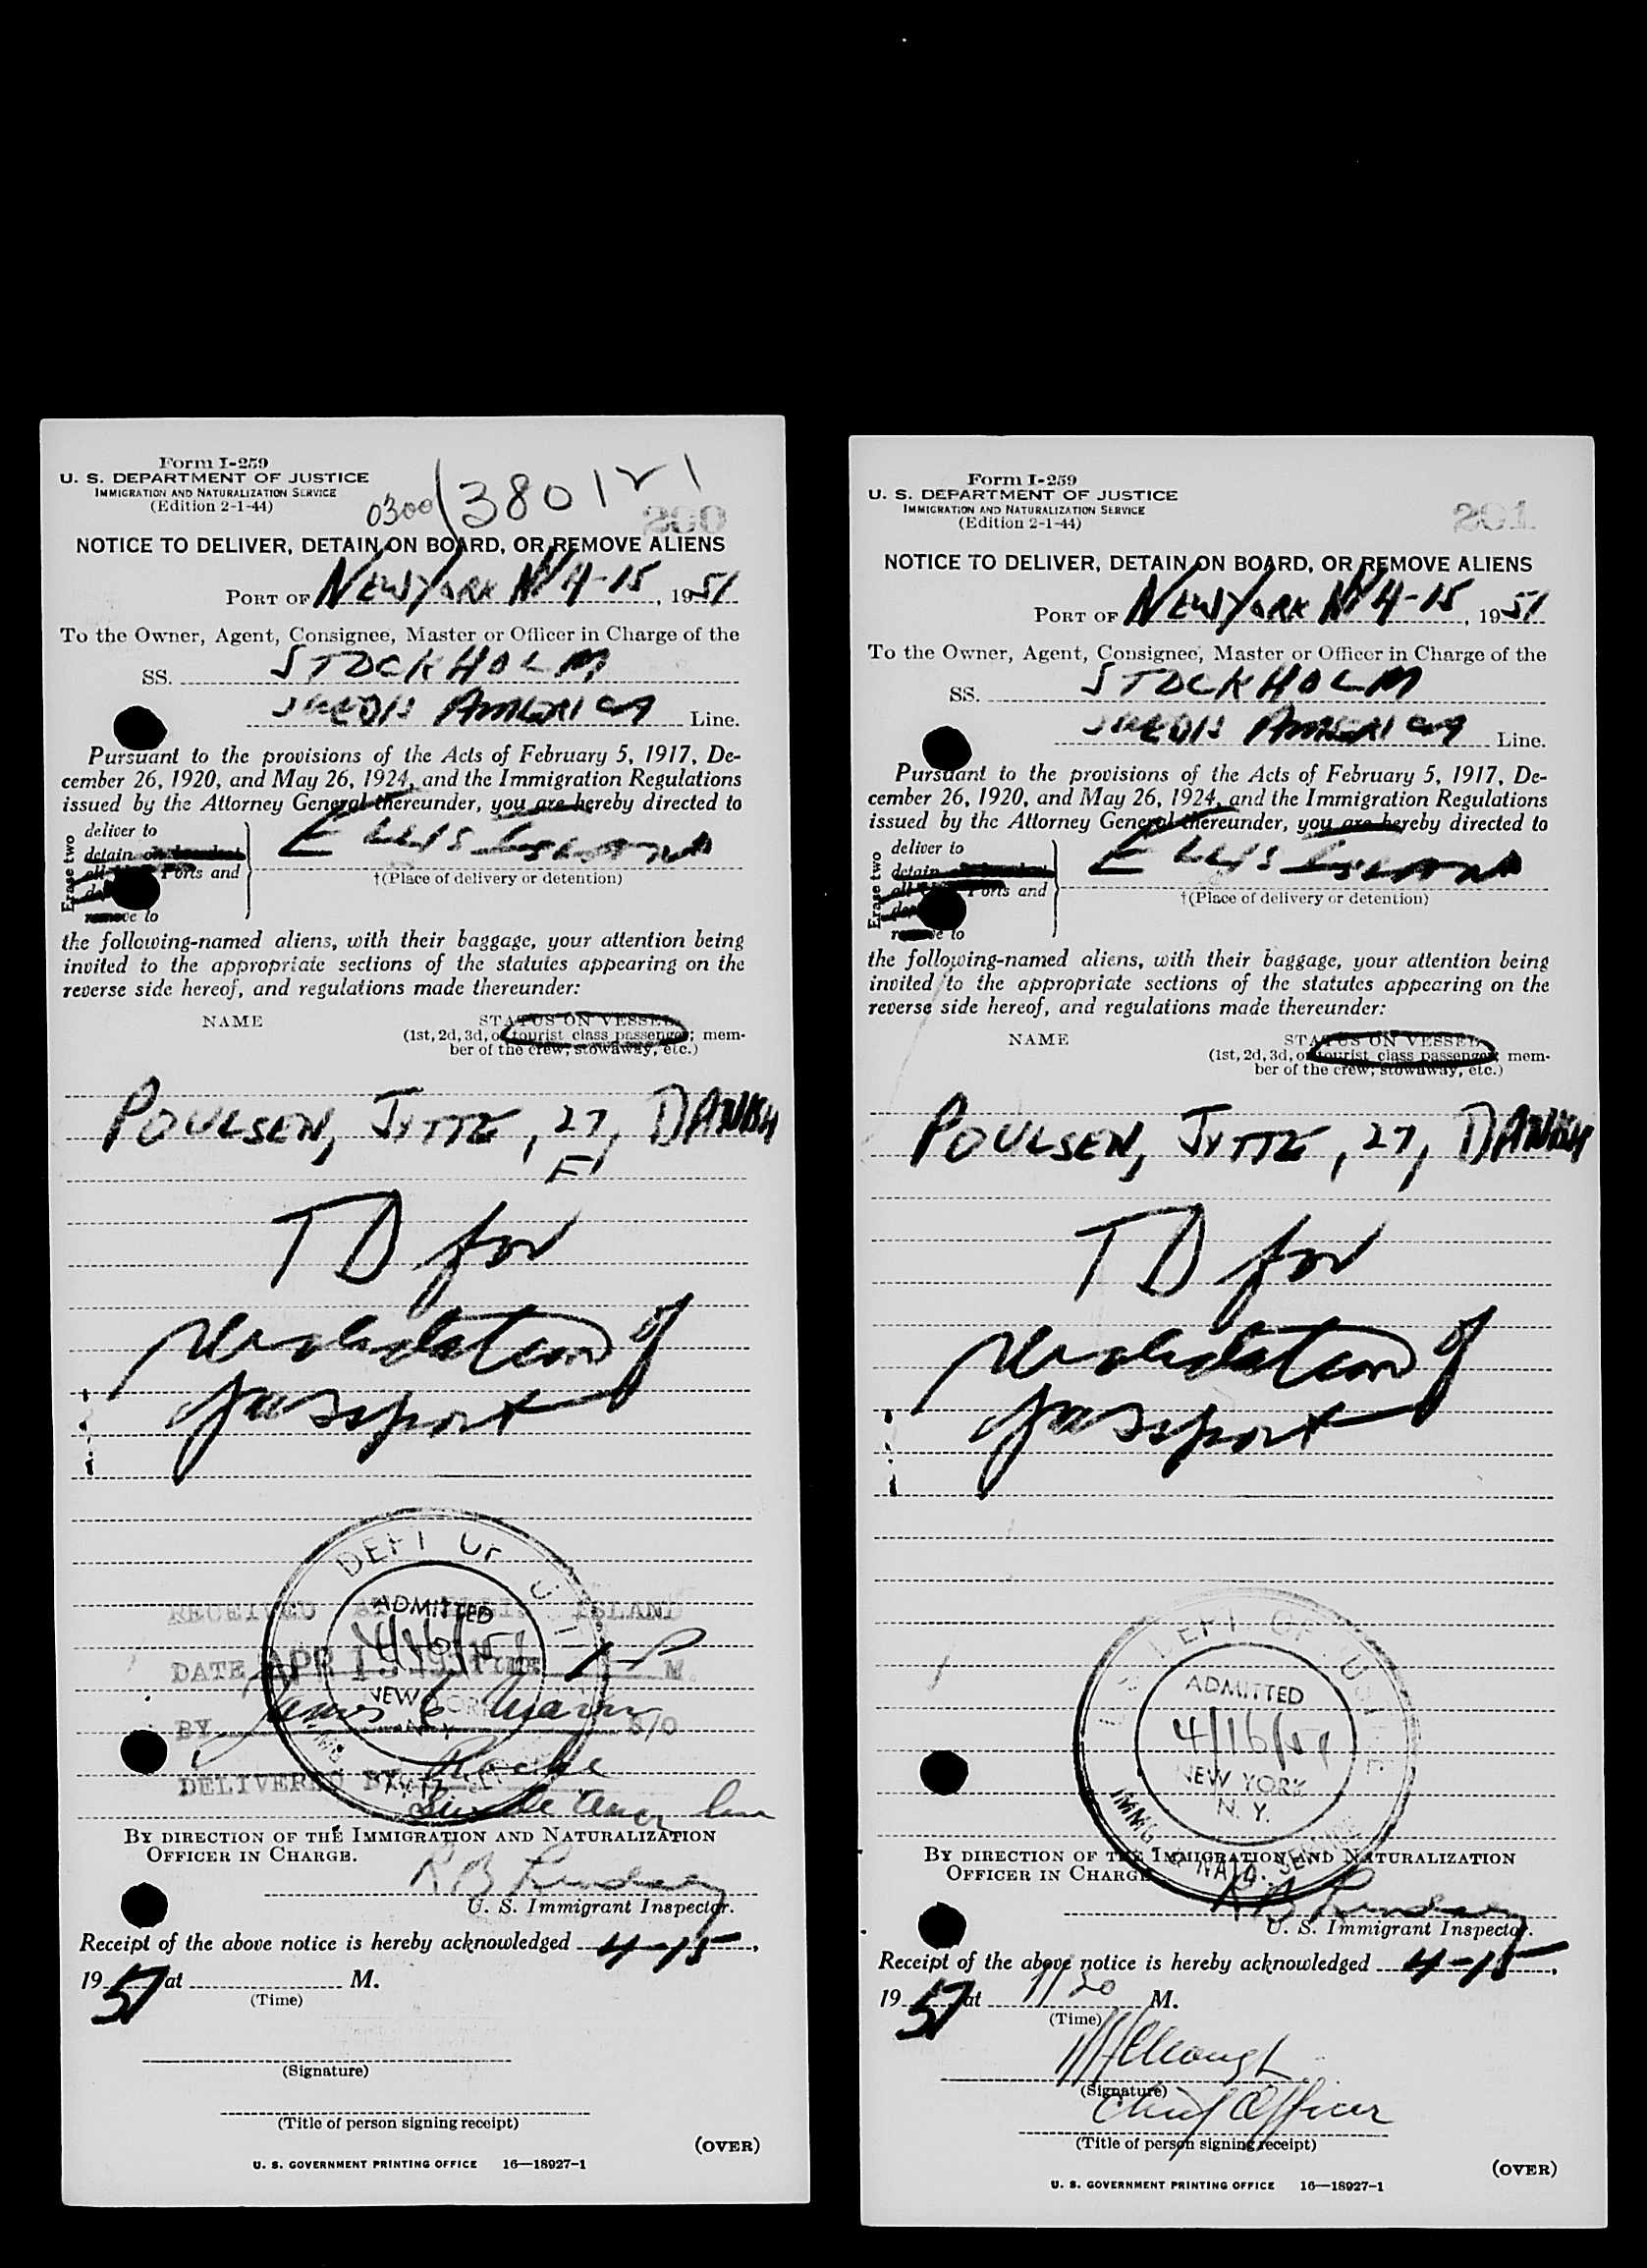 Form I-259
U. S. DEPARTMENT OF JUSTICE
IMMIGRATION AND NATURALIZATION SERVICE
(Edition 2-1-44)
0300/380121
200
NOTICE TO DELIVER, DETAIN ON BOARD, OR REMOVE ALIENS
PORT OF NEW YORK NY 4-15, 1951
To the Owner, Agent, Consignee, Master or Officer in Charge of the
SS. STOCKHOLM
SWEDISH AMERICA Line.
Pursuant to the provisions of the Acts of February 5, 1917, De-
cember 26, 1920, and May 26, 1924, and the Immigration Regulations
issued by the Attorney General thereunder, you are hereby directed to
Erase two
deliver to
detain on
all Ports and
remove to
ELLIS ISLAND
†(Place of delivery or detention)
the following-named aliens, with their baggage, your attention being
invited to the appropriate sections of the statutes appearing on the
reverse side hereof, and regulations made thereunder:
NAME STATUS ON VESSEL
(1st, 2d, 3d, or tourist class passenger; mem-
ber of the crew, stowaway, etc.)
POULSEN, JYTTE, 27, DANISH
F
TD for
revalidation of
passport
DEPT OF
ADMITTED
4/16/51
NEW YORK
N.Y.
RECEIVED AT ELLIS ISLAND
DATE APR 15 1951 TIME M.
BY James S/O
DELIVERED BY Roche
Swede Amer Line
BY DIRECTION OF THE IMMIGRATION AND NATURALIZATION
OFFICER IN CHARGE.
R B Lindsay
U. S. Immigrant Inspector.
Receipt of the above notice is hereby acknowledged 4-15,
1951 at M.
(Time)
(Signature)
(Title of person signing receipt)
(OVER)
U. S. GOVERNMENT PRINTING OFFICE 16—18927-1
Form I-259
U. S. DEPARTMENT OF JUSTICE
IMMIGRATION AND NATURALIZATION SERVICE
(Edition 2-1-44)
201
NOTICE TO DELIVER, DETAIN ON BOARD, OR REMOVE ALIENS
PORT OF NEW YORK NY 4-15, 1951
To the Owner, Agent, Consignee, Master or Officer in Charge of the
SS. STOCKHOLM
SWEDISH AMERICA Line.
Pursuant to the provisions of the Acts of February 5, 1917, De-
cember 26, 1920, and May 26, 1924, and the Immigration Regulations
issued by the Attorney General thereunder, you are hereby directed to
Erase two
deliver to
detain
all Ports and
remove to
ELLIS ISLAND
†(Place of delivery or detention)
the following-named aliens, with their baggage, your attention being
invited to the appropriate sections of the statutes appearing on the
reverse side hereof, and regulations made thereunder:
NAME STATUS ON VESSEL
(1st, 2d, 3d, or tourist class passenger; mem-
ber of the crew, stowaway, etc.)
POULSEN, JYTTE, 27, DANISH
TD for
revalidation of
passport
U. S. DEPT OF JUSTICE
ADMITTED
4/16/51
NEW YORK
N. Y.
IMMG. & NATZ. SERVICE
BY DIRECTION OF THE IMMIGRATION AND NATURALIZATION
OFFICER IN CHARGE
R B Lindsay
U. S. Immigrant Inspector.
Receipt of the above notice is hereby acknowledged 4-15,
1951 at 1130 M.
(Time)
(Signature)
Chief Officer
(Title of person signing receipt)
(OVER)
U. S. GOVERNMENT PRINTING OFFICE 16—18927-1